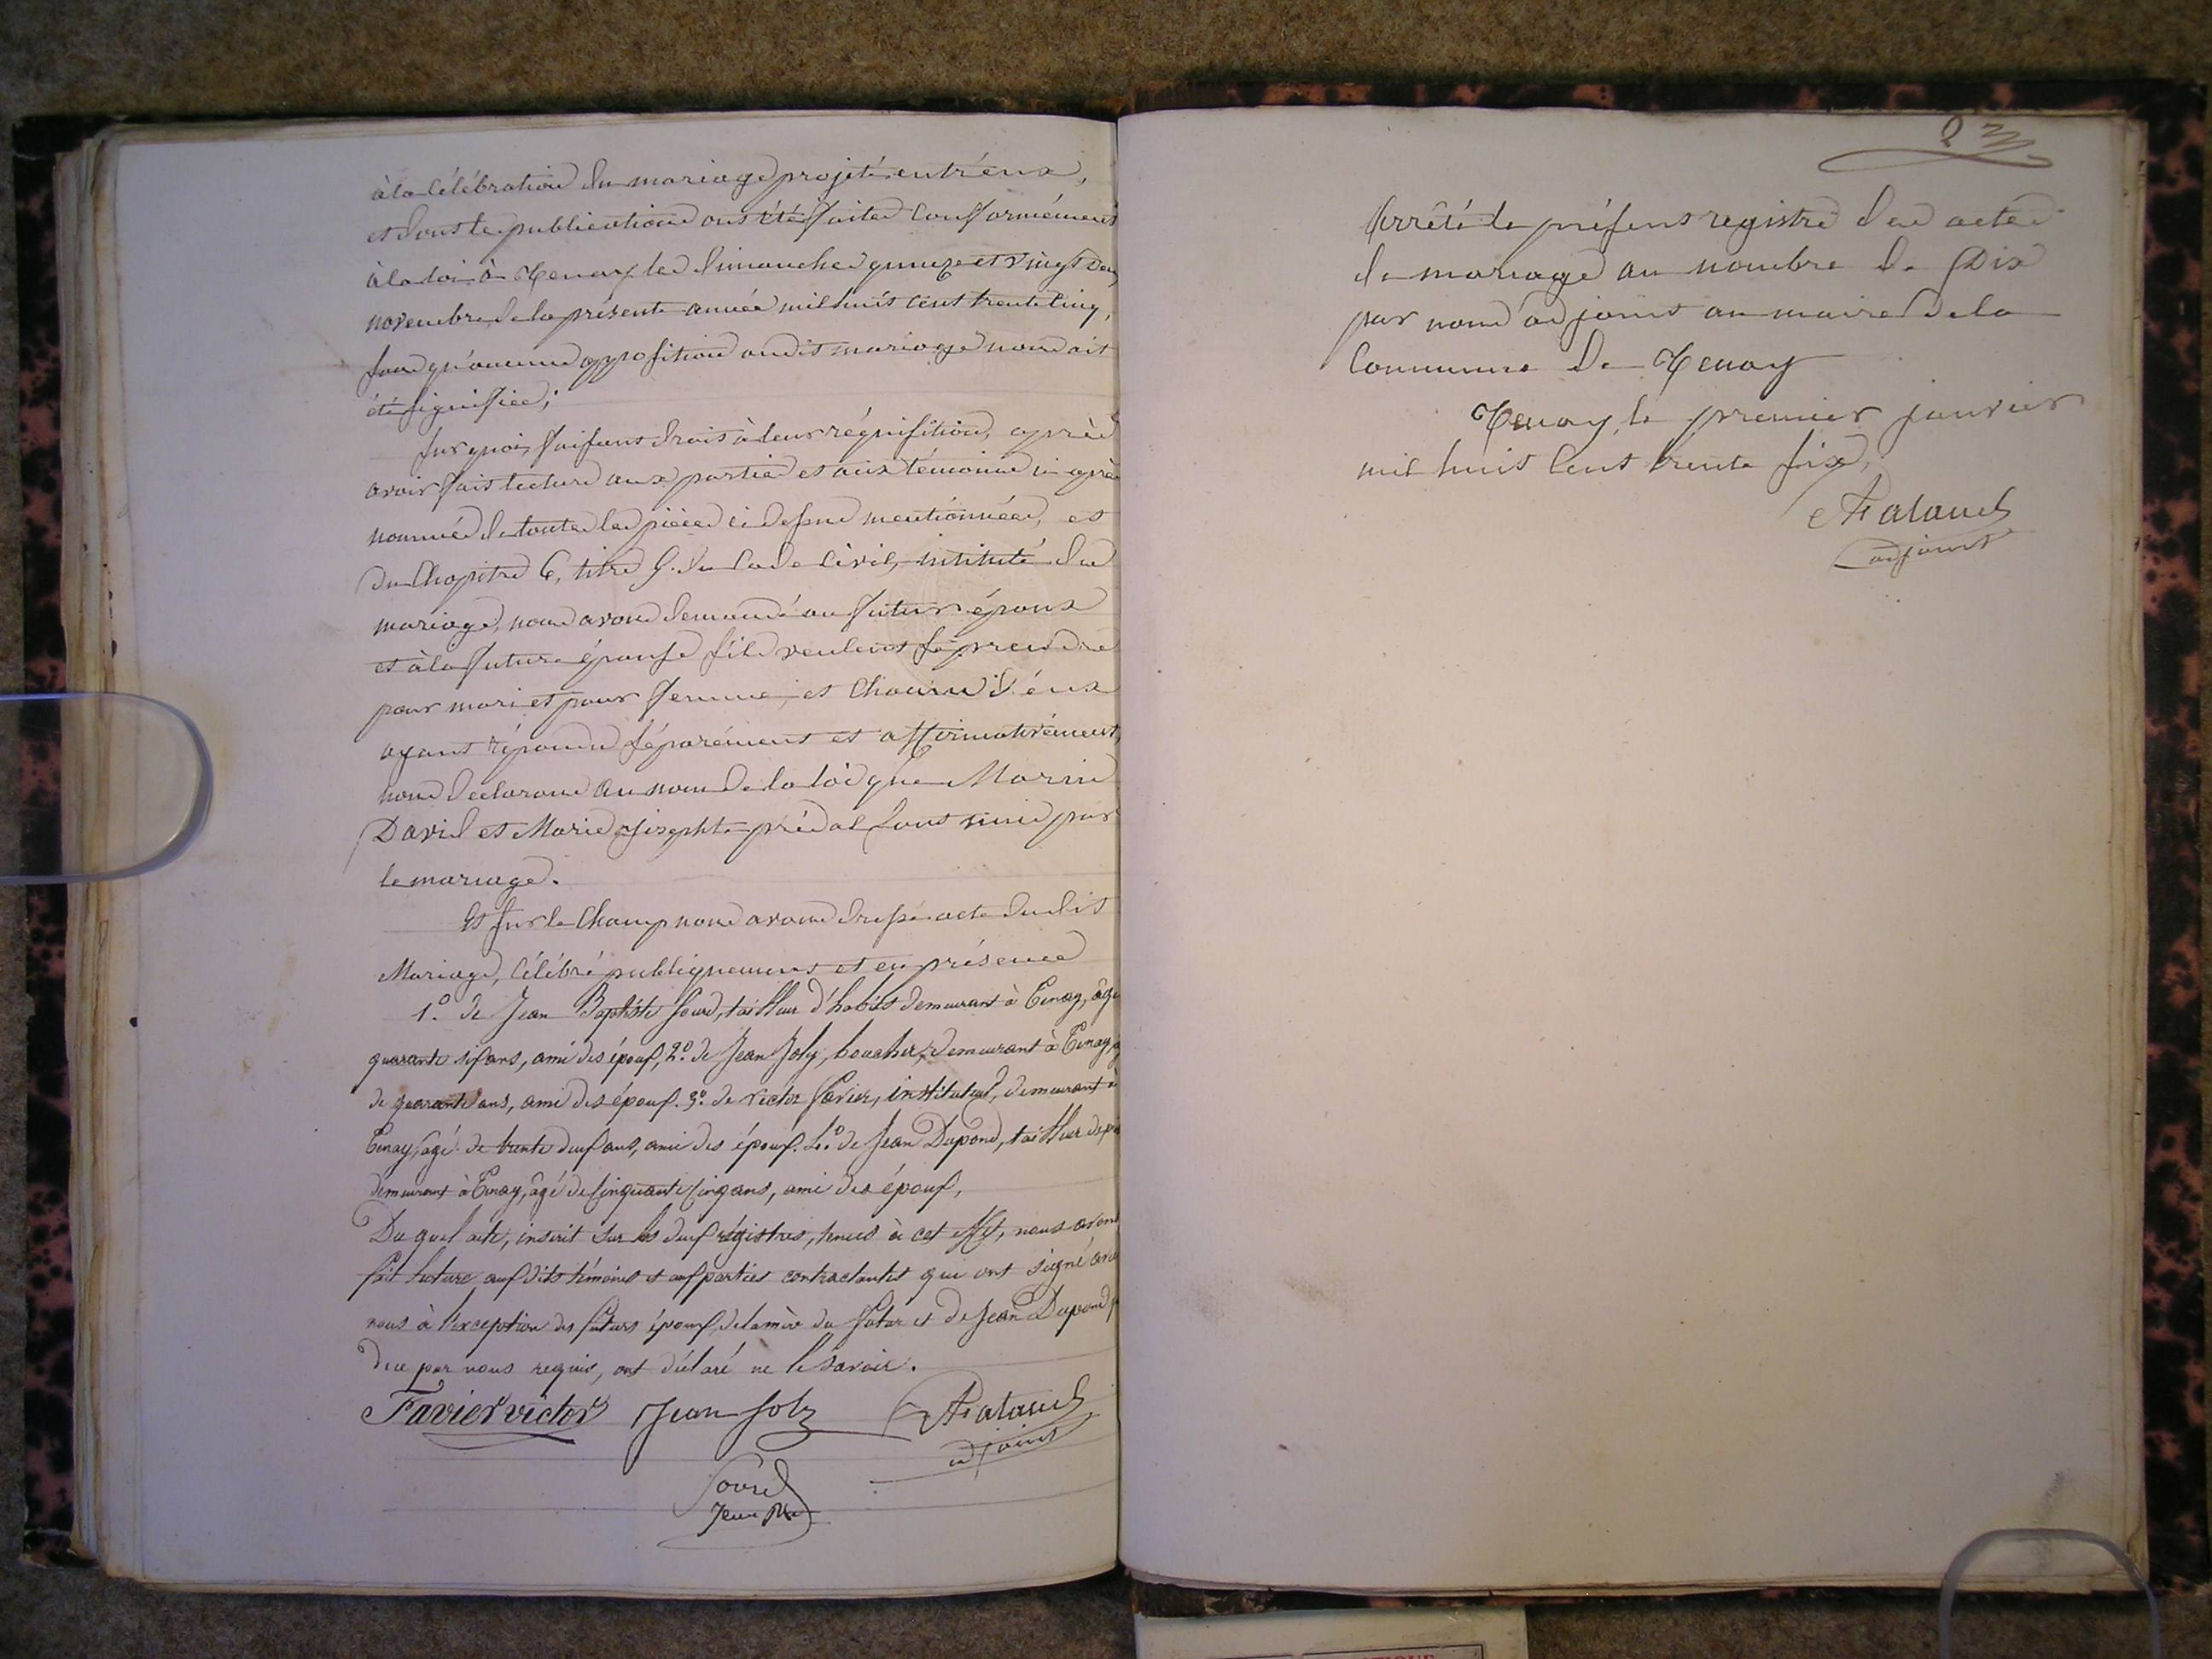 à la célébration du mariage projeté entr'eux,
et dont les publications ont été faites conformément
à la loi à Tenay les dimanches quinze et vingt deux
novembre de la présente année mil huit cent trente cinq,
sans qu'aucune opposition audit mariage nous ait
été signifiée;
sur quoi, faisant droit à leur réquisition, après
avoir fait lecture aux parties et aux témoins ci après
nommés de toutes les pièces ci dessus mentionnées, et
du Chapitre 6, titre 5. du Code Civil, intitulé du
mariage, nous avons demandé au futur époux
et à la future épouse s'ils veulent se prendre
pour mari et pour femme; et chacun d'eux
ayant répondu séparément et affirmativement,
nous déclarons au nom de la loi que Marin
David et Marie Josephte prédal sont unis par
le mariage.
Et sur le champ nous avons dressé acte dudit
Mariage, célébré publiquement et en présence
1.º de Jean Baptiste Sourd, tailleur d'habits demeurant à Tenay, âgé
quarante six ans, ami des époux, 2.º de Jean Joly, boucher, demeurant à Tenay,
de quarante ans, ami des époux. 3.º de Victor Favier, instituteur, demeurant à
Tenay, âgé de trente deux ans, ami des époux. 4.º de Jean Dupond, tailleur de
demeurant à Tenay, âgé de cinquante cinq ans, ami des époux,
Du quel acte, inscrit sur les deux régistres, tenus à cet effet, nous avons
fait lecture aux dits témoins et aux parties contractantes qui ont signé avec
nous à l'exception des futurs époux, de la mère du futur et de Jean Dupond
de ce par nous requis, ont déclaré ne le savoir.
Favier victor Jean Joly
adjoint
Sourd
Jean Bte
Arrêté le présent registre des actes
de mariage au nombre de Dix
par nous adjoint au maire de la
Commune de Tenay
Tenay, le premier janvier
mil huit cent trente six,
adjoint